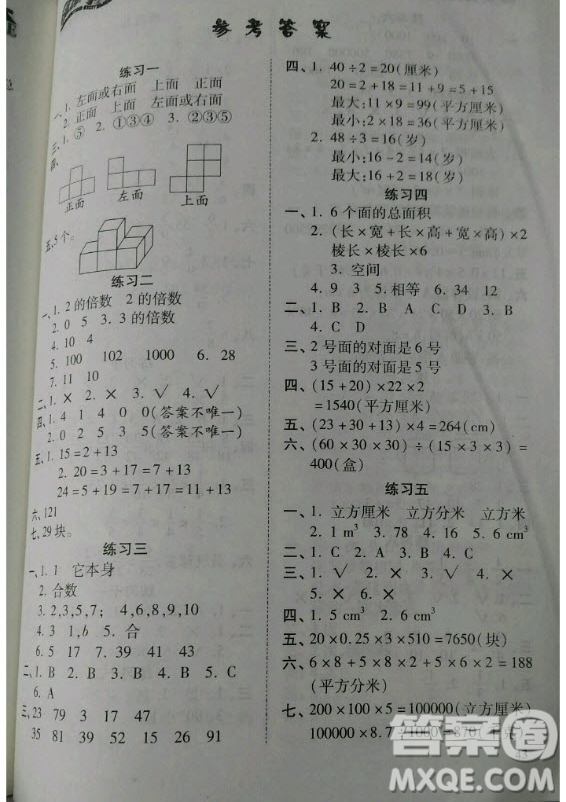 参考答案
练习一
一、1. 左面或右面 上面 正面
2. 正面 上面 左面或右面
三、1. ⑤ 2. ①③④ 3. ②③⑤
四、
正面 左面 上面
五、5 个。
练习二
一、1. 2的倍数 2的倍数
2. 0 5 3. 3的倍数
4. 10 4
5. 100 102 1000 6. 28
7. 11 10
二、1. × 2. × 3. √ 4. √
三、1. 4 1 4 0 0(答案不唯一)
2. 0 2 5 3 5(答案不唯一)
五、1. 15=2+13
2. 20=3+17=7+13
24=5+19=7+17=11+13
六、121
七、29块。
练习三
一、1. 1 它本身
2. 合数
3. 2,3,5,7; 4,6,8,9,10
4. 3 1,b 5. 合
6. 5 17 7. 39 41 43
二、1. B 2. B 3. B 4. B 5. C
6. A
三、23 79 3 17 47
35 81 39 52 15 26 91
四、1. 40÷2=20(厘米)
20=2+18=11+9=5+15
最大:11×9=99(平方厘米)
最小:2×18=36(平方厘米)
2. 48÷3=16(岁)
最小:16-2=14(岁)
最大:16+2=18(岁)
练习四
一、1. 6个面的总面积
2. (长×宽+长×高+宽×高)×2
棱长×棱长×6
3. 空间
4. 9 3 5. 相等 6. 34 12
二、1. B 2. B A C D 3. B
4. C D
三、2号面的对面是6号
3号面的对面是5号
四、(15+20)×22×2
=1540(平方厘米)
五、(23+30+13)×4=264(cm)
六、(60×30×30)÷(15×3×3)=
400(盒)
练习五
一、1. 立方厘米 立方分米 立方米
2. 1 m³ 3. 78 4. 16 5. 3
二、1. C 2. B 3. A 4. C
三、1. √ 2. × 3. × 4. √
四、1. 5 cm³ 2. 6 cm³
五、20×0.25×3×510=7650(块)
六、6×8+5×8×2+5×6×2=188
(平方厘米)
七、200×100×5=100000(立方厘米)
100000×8.7÷1000=870(千克)
答案圈
MXQE.COM